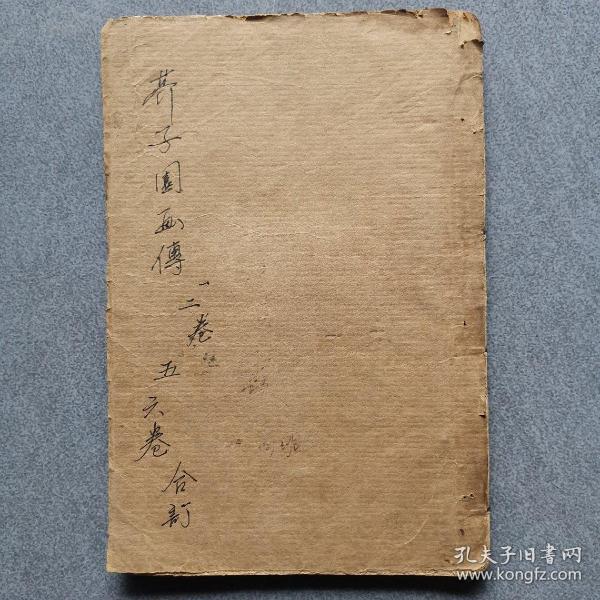 芥子園画傳
一二卷
五六卷
合訂
孔夫子旧書网
www.kongfz.com